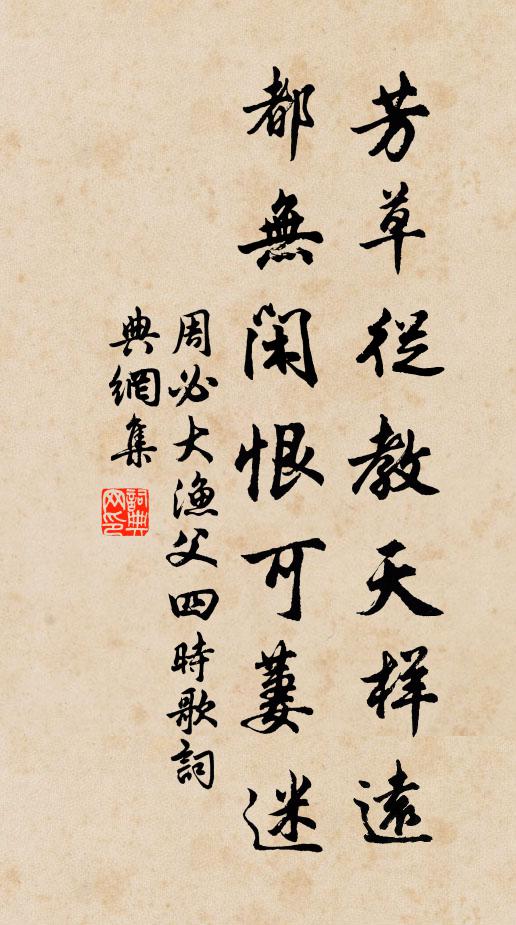 芳草從教天样遠
都無閑恨可萋迷
周必大漁父四時歌詞
典網集
詞典網印